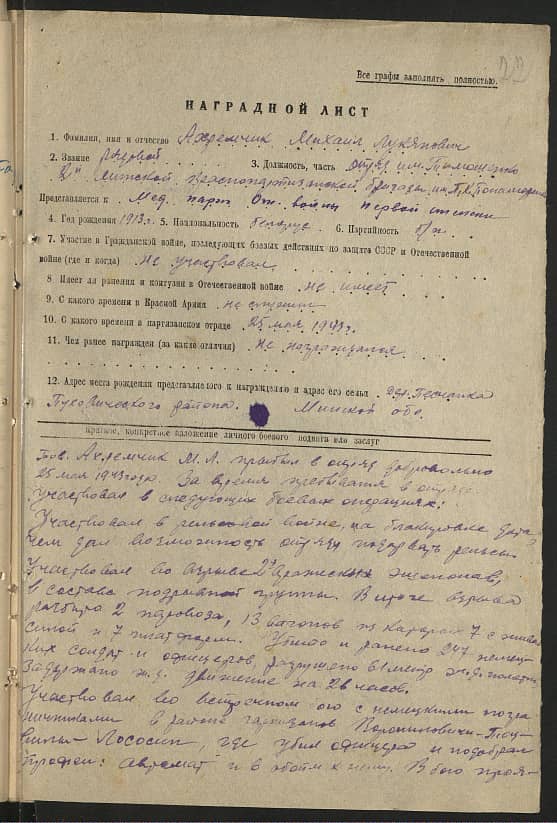 Все графы заполнять полностью.
НАГРАДНОЙ ЛИСТ
1. Фамилия, имя и отчество Ахремчик Михаил Лукянович
2. Звание рядовой 3. Должность, часть отряд им. Тимошенко
2й Минской партизанской бригады им. П.К. Пономаренко
Представляется к Мед. парт. От. войны первой степени
4. Год рождения 1913 г. 5. Национальность белорус 6. Партийность б/п
7. Участие в Гражданской войне, последующих боевых действиях по защите СССР и Отечественной
войне (где и когда) не участвовал
8 Имеет ли ранения и контузии в Отечественной войне не имеет
9. С какого времени в Красной Армии не служил
10. С какого времени в партизанском отряде 25 мая 1943 г.
11. Чем ранее награжден (за какие отличия) не награждался
12. Адрес места рождения представляемого к награждению и адрес его семьи дер. Песчанка
Пуховического района Минской обл.
Краткое, конкретное изложение личного боевого подвига или заслуг
Тов. Ахремчик М.Л. прибыл в отряд добровольно
25 мая 1943 года. За время пребывания в отряде
участвовал в следующих боевых операциях:
Участвовал в рельсовой войне, на блокировке
чем дал возможность отряду подорвать рельсы.
Участвовал во взрыве 2х вражеских эшелонов,
в составе подрывной группы. В итоге взрыва
разбито 2 паровоза, 13 вагонов из которых 7 с живой
силой и 7 платформ. Убито и ранено 247 немец-
ких солдат и офицеров, разрушено 61 метр ж.д. полотна
Задержано ж.д. движение на 26 часов.
Участвовал во встречном бою с немецкими
в районе гарнизонов
Лососин, где убил офицера и подобрал
трофеи: автомат и 6 обойм к нему. В бою проя-